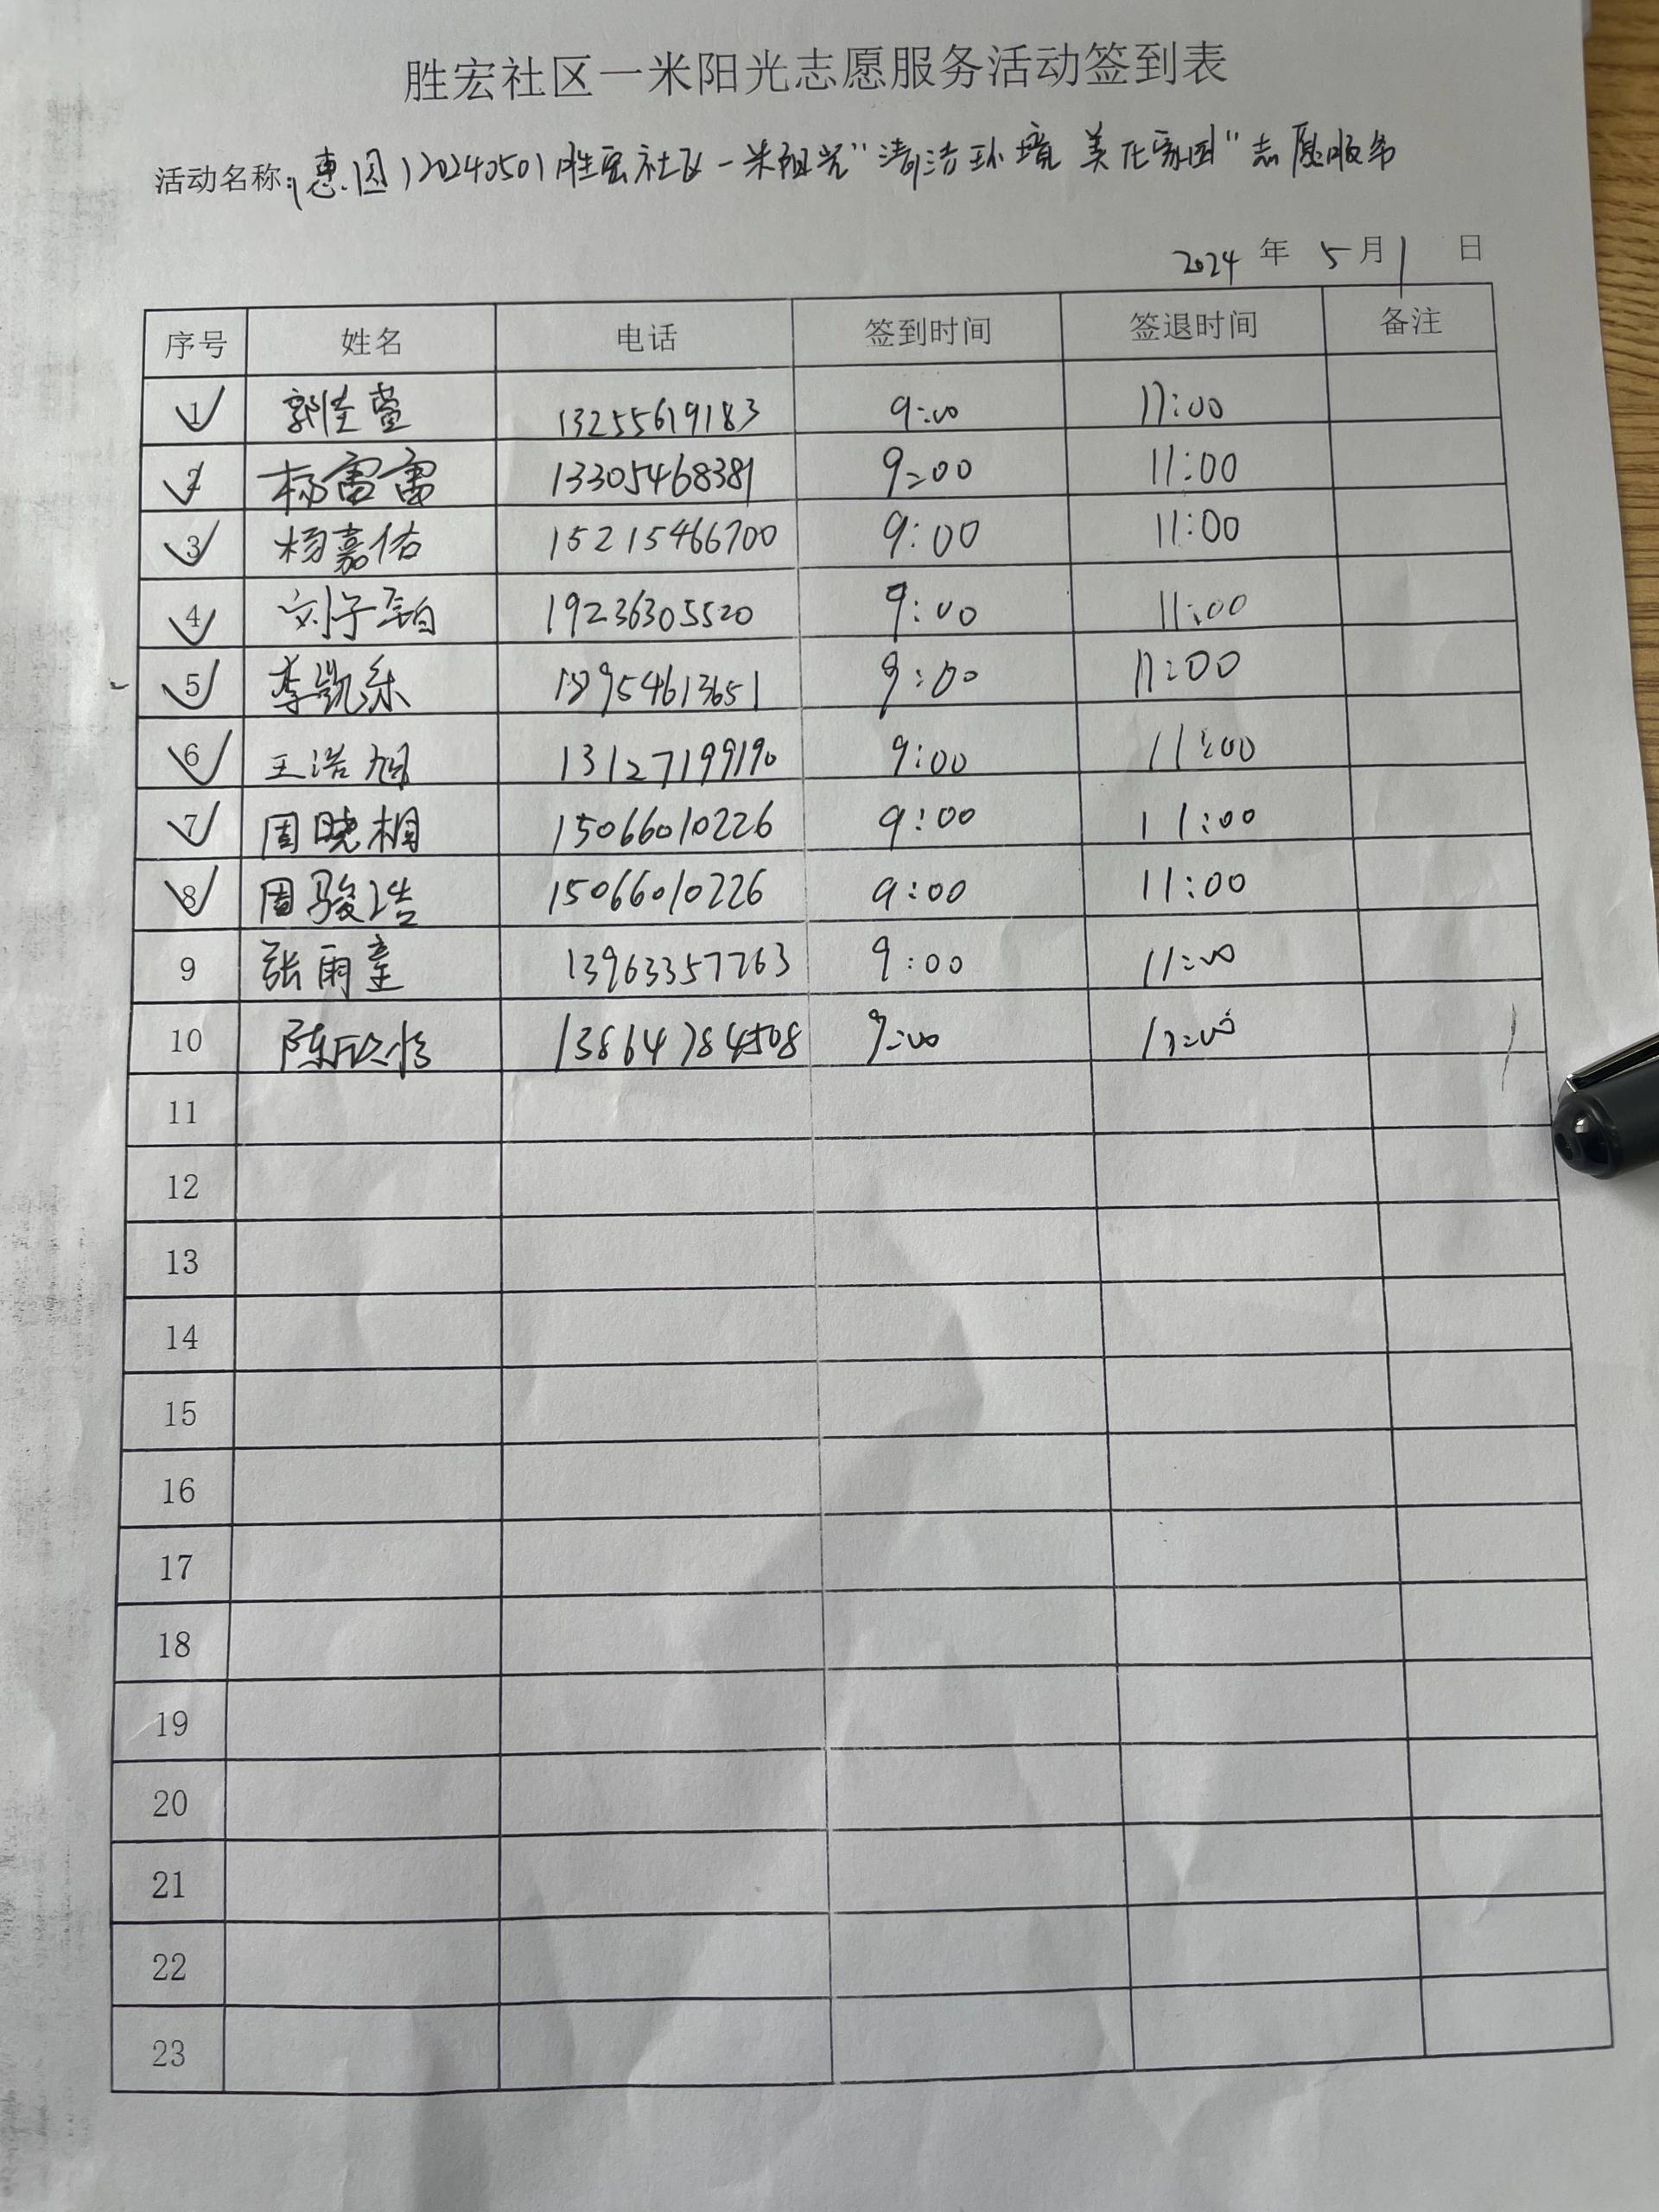 胜宏社区一米阳光志愿服务活动签到表
活动名称:(惠园)20240501胜宏社区一米阳光"清洁环境 美化家园"志愿服务
2024 年 5 月 1 日
序号 姓名 电话 签到时间 签退时间 备注
1 郭佳萱 13255619183 9:00 11:00
2 杨雷雷 13305468381 9:00 11:00
3 杨嘉佑 15215466700 9:00 11:00
4 刘子铂 19236305520 9:00 11:00
5 李凯乐 18954613651 9:00 11:00
6 王浩旭 13127199190 9:00 11:00
7 周晓桐 15066010226 9:00 11:00
8 周骏浩 15066010226 9:00 11:00
9 张雨童 13963357763 9:00 11:00
10 陈欣怡 13864784508 9:00 11:00
11
12
13
14
15
16
17
18
19
20
21
22
23